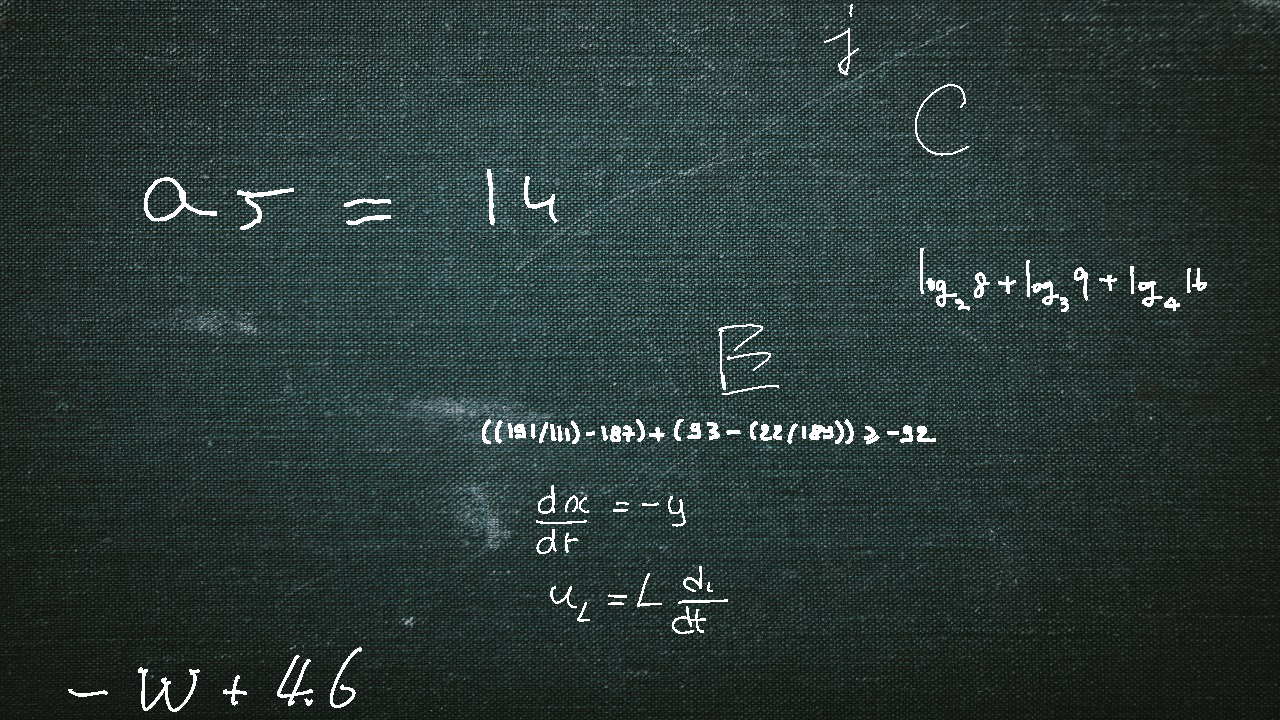 j
C
a5 = 14
log₂8+log₃9+log₄16
E
((191/111)-187)+(93-(22/189)) ≥ -92
dx/dt = -y
u_L = L di/dt
- W + 4.6